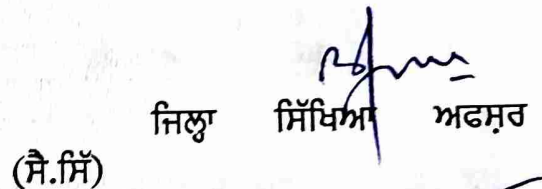 ਜਿਲ੍ਹਾ ਸਿੱਖਿਆ ਅਫਸ਼ਰ
(ਸੈ.ਸਿੱ)